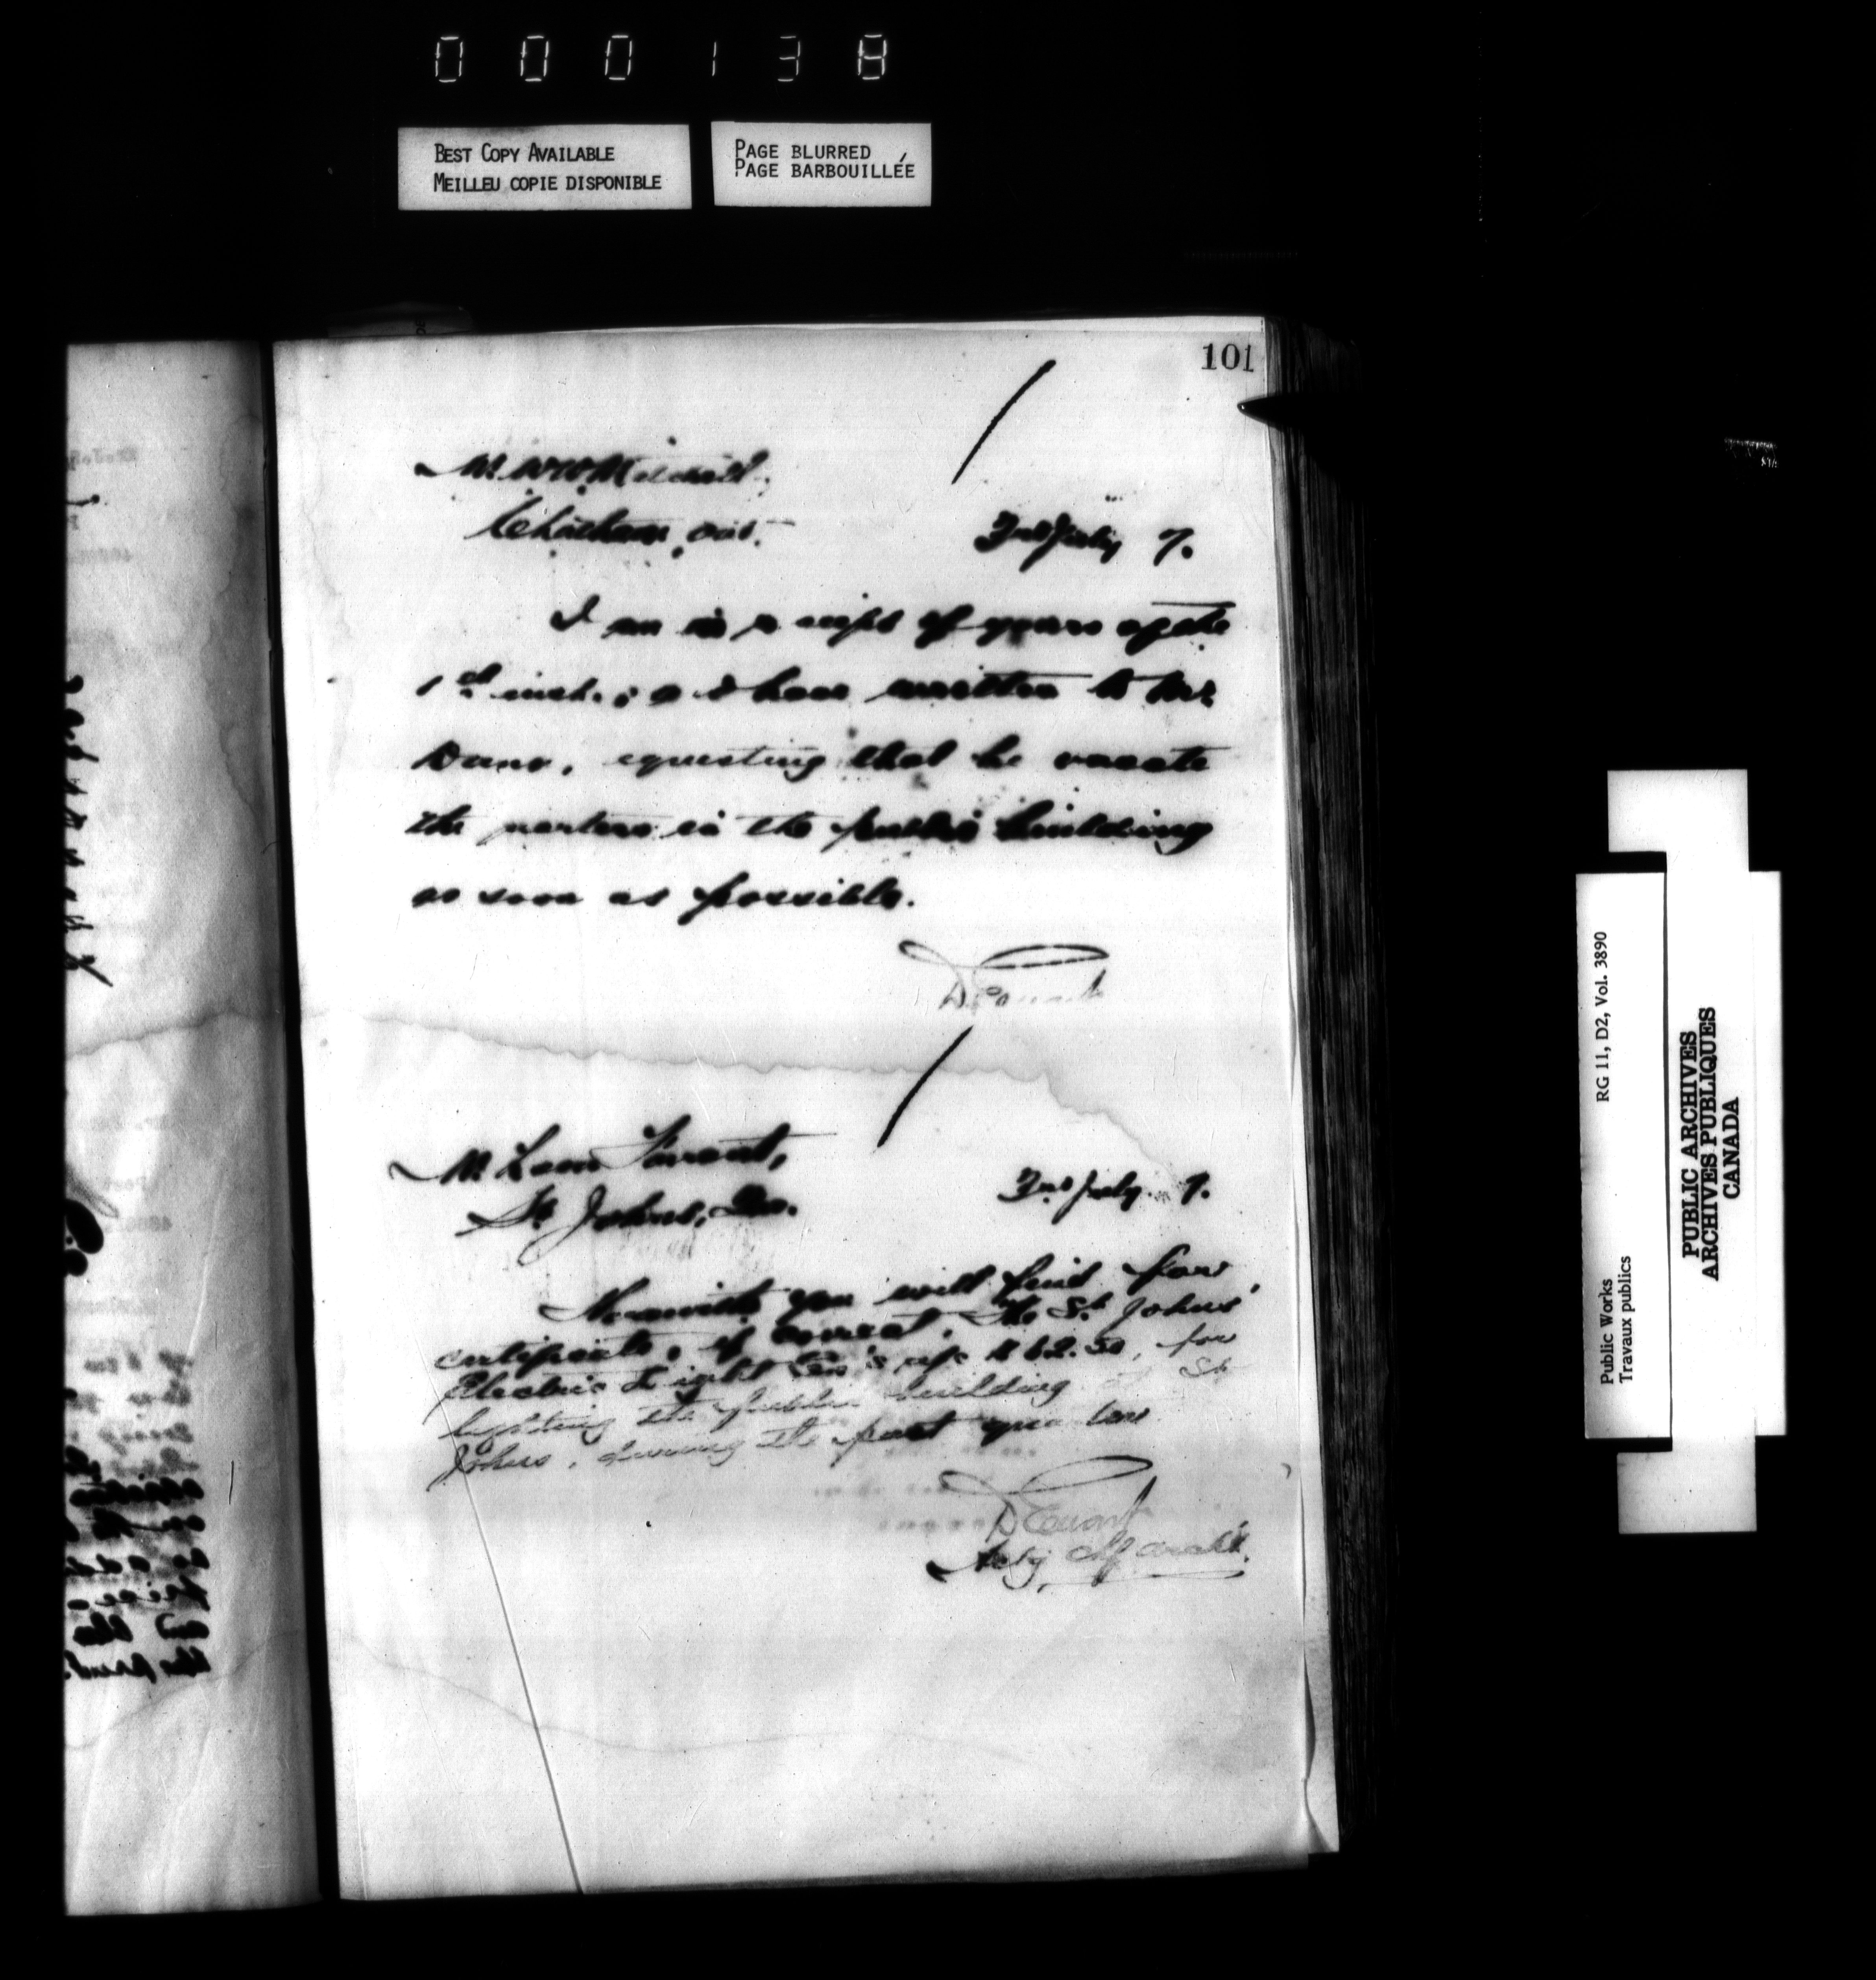 000138
BEST COPY AVAILABLE
MEILLEU COPIE DISPONIBLE
PAGE BLURRED
PAGE BARBOUILLÉE
101
Mr. W W Mitchell,
Chatham, Ont.
3rd July 7.
I am in receipt of yours of the
1st inst.; & I have written to Mr
requesting that he vacate
the quarters in the public building
as soon as possible.
D Ewart
Mr. Leon
St Johns, Qu.
3rd July 7.
Herewith you will find for
certificate, if correct, the St. Johns'
Electric Light Co's a/c $62.50, for
lighting the public building at St
Johns, during the past quarter
D Ewart
Actg Chf Archt.
Public Works
Travaux publics
RG 11, D2, Vol. 3890
PUBLIC ARCHIVES
ARCHIVES PUBLIQUES
CANADA